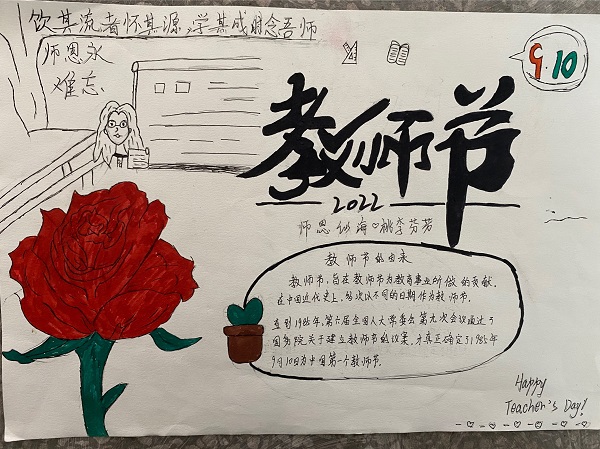 饮其流者怀其源,学其成时念吾师
师恩永
难忘
9.10
教师节
2022
师恩似海♡桃李芬芳
教师节的由来
教师节,旨在教师节为教育事业所做的贡献.
在中国近代史上,多次以不同的日期作为教师节.
直到1985年,第六届全国人大常委会第九次会议通过了
国务院关于建立教师节的议案,才真正确定了1985年
9月10日为中国第一个教师节.
Happy
Teacher's Day!